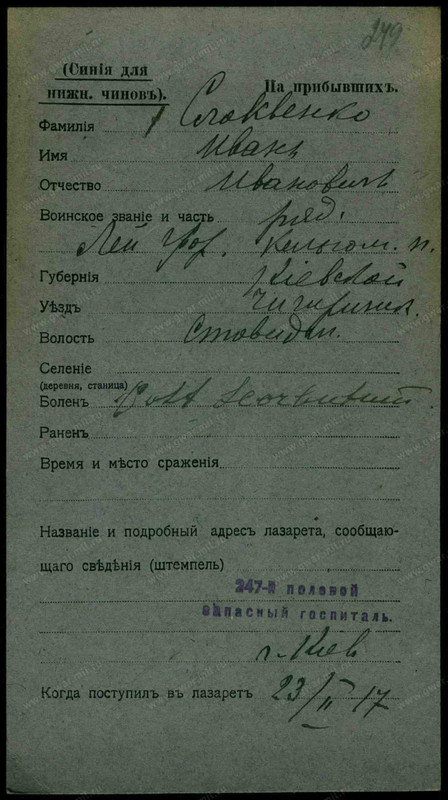 249
(Синія для
нижн. чиновъ).
На прибывшихъ.
Фамилія Слаквенко
Имя Иванъ
Отчество Ивановичъ
Воинское званіе и часть ряд.
Лей Кексгом. п.
Губернія Кіевской
Уѣздъ Чигиринск.
Волость
Селеніе
(деревня, станица)
Боленъ Scorbutum
Раненъ
Время и мѣсто сраженія
Названіе и подробный адресъ лазарета, сообщаю-
щаго свѣдѣнія (штемпель)
247-й полевой
запасный госпиталь.
г. Кіев
Когда поступилъ въ лазаретъ 23/II 17